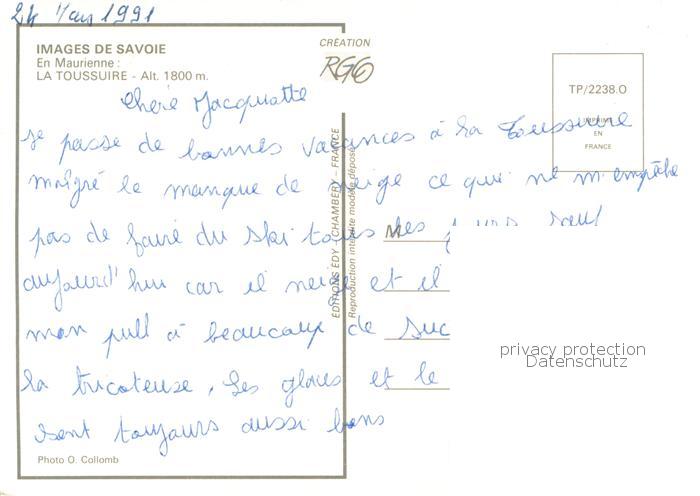 24 Mars 1991
IMAGES DE SAVOIE
En Maurienne :
LA TOUSSUIRE - Alt. 1800 m.
CRÉATION
RGG
TP/2238.O
IMPRIMÉ
EN
FRANCE
Chère Jacquotte
Je passe de bonnes vacances à La Toussuire
malgré le manque de neige ce qui ne m'empêche
pas de faire du ski tous les jours sauf
aujourd'hui car il neige et il
mon pull à beaucoup de suc
la tricoteuse, Les glaces et le
sont toujours aussi bons
EDITIONS EDY - CHAMBÉRY - FRANCE
Reproduction interdite modèle déposé
Photo O. Collomb
privacy protection
Datenschutz